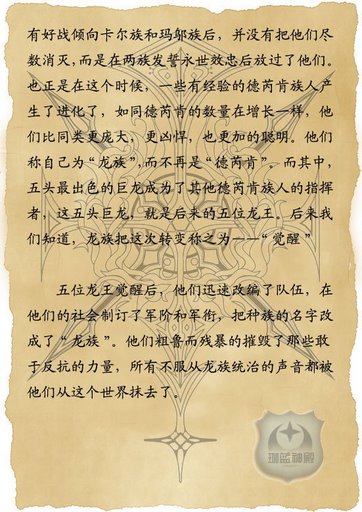 有好战倾向卡尔族和玛邬族后，并没有把他们尽
数消灭,而是在两族发誓永世效忠后放过了他们。
也正是在这个时候，一些有经验的德芮肯族人产
生了进化了，如同德芮肯的数量在增长一样，他
们比同类更庞大，更凶悍，也更加的聪明。他们
称自己为“龙族”,而不再是“德芮肯”。而其中，
五头最出色的巨龙成为了其他德芮肯族人的指挥
者，这五头巨龙，就是后来的五位龙王。后来我
们知道，龙族把这次转变称之为——“觉醒”
五位龙王觉醒后，他们迅速改编了队伍，在
他们的社会制订了军阶和军衔，把种族的名字改
成了“龙族”。他们粗鲁而残暴的摧毁了那些敢
于反抗的力量，所有不服从龙族统治的声音都被
他们从这个世界抹去了。
珈蓝神殿